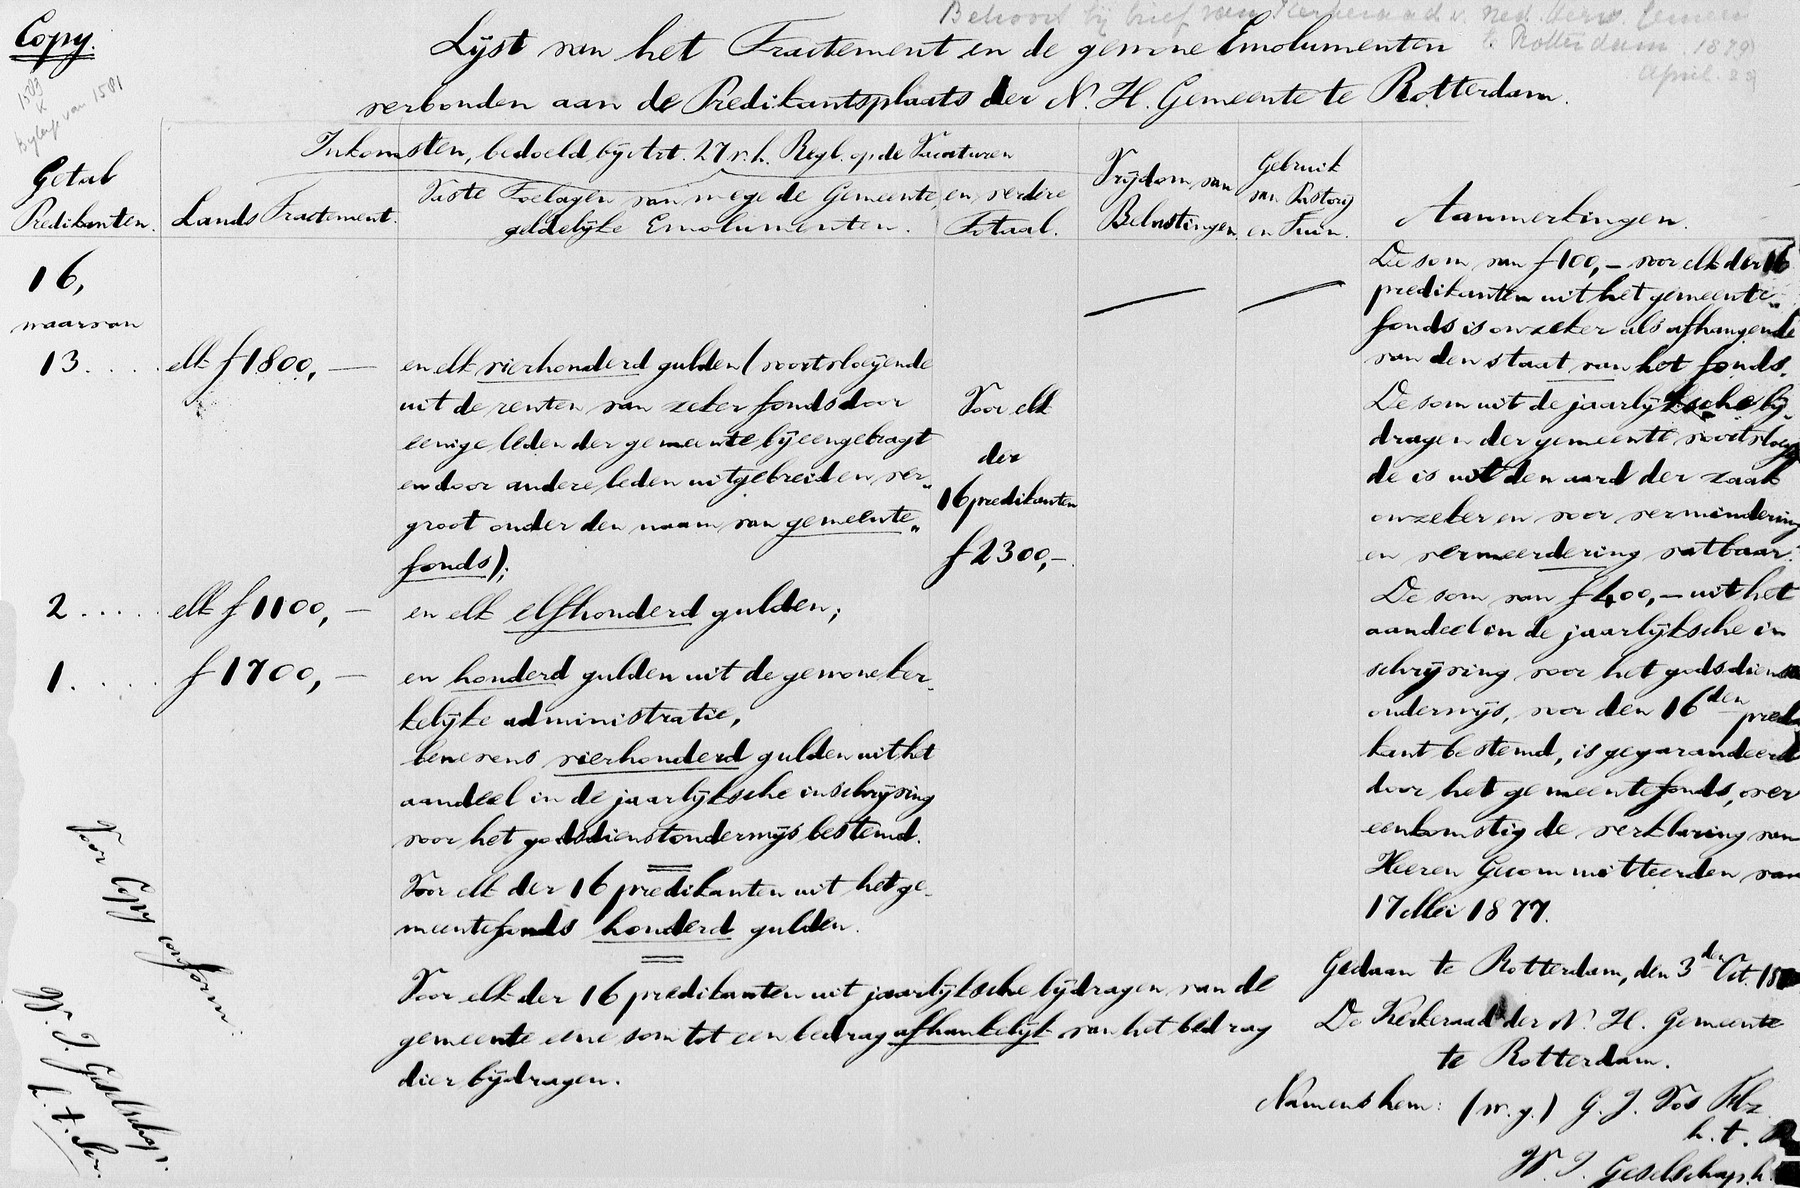 Copy.
Behoort bij brief van Kerkeraad v. Ned. Herv. Gemeente
te Rotterdam 1879
April. 29
1589
Bylage van 1581
Lijst van het Tractement en de gewone Emolumenten
verbonden aan de Predikantsplaats der N. H. Gemeente te Rotterdam.
Getal
Predikanten.
Inkomsten, bedoeld bij Art. 27 v. h. Regl. op de Vacaturen
Lands Tractement.
Vaste Toelagen van wege de Gemeente, en verdere
geldelijke Emolumenten.
Totaal.
Vrijdom van
Belastingen.
Gebruik
van Pastory
en Tuin.
Aanmerkingen.
16,
waarvan
13. . . . . elk f 1800, —
en elk vierhonderd gulden (voortvloeijende
uit de renten van zeker fonds door
eenige leden der gemeente bijeengebragt
en door andere leden uitgebreid en ver„
groot onder den naam van gemeente„
fonds);
2 . . . . . elk f 1100, —
en elk elfhonderd gulden;
1. . . . . f 1700, —
en honderd gulden uit de gewone ker„
kelijke administratie,
benevens vierhonderd gulden uit het
aandeel in de jaarlijksche inschrijving
voor het godsdienstonderwijs bestemd.
Voor elk der 16 predikanten uit het ge„
meentefonds honderd gulden.
Voor elk der 16 predikanten uit jaarlijksche bijdragen van de
gemeente eene som tot een bedrag afhankelijk van het bedrag
dier bijdragen.
Voor elk
der
16 predikanten
f 2300,-
De som van f 100,- voor elk der 16
predikanten uit het gemeente„
fonds is onzeker als afhangende
van den staat van het fonds.
De som uit de jaarlijksche bij„
dragen der gemeente voortvloeijen
de is uit den aard der zaak
onzeker en voor vermindering
en vermeerdering vatbaar.
De som van f 400,- uit het
aandeel in de jaarlijksche in
schrijving voor het godsdienst
onderwijs, voor den 16den predi
kant bestemd, is gegarandeerd
door het gemeentefonds, over
eenkomstig de verklaring van
Heeren Gecommitteerden van
17 Mei 1877.
Gedaan te Rotterdam, den 3den Oct. 18
De Kerkeraad der N. H. Gemeente
te Rotterdam.
Namens hem: (w. g.) G. J. Vos Abz.
h. t. P
W. J. Geselschap, h.
Voor Copy conform.
W. J. Geselschap.
h. t. Scr.